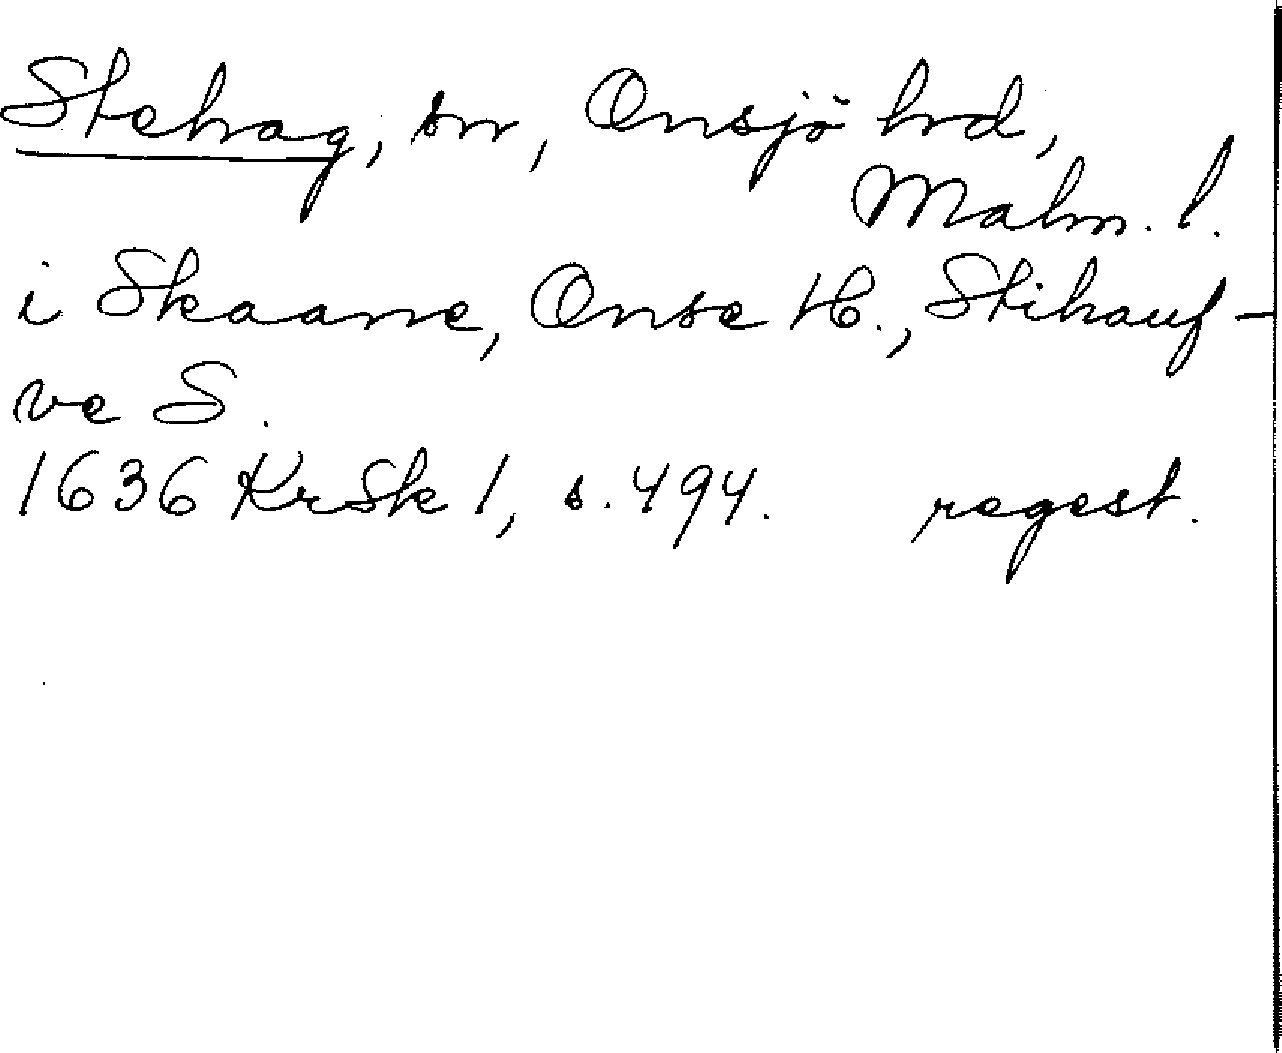 Stehag, sn, Onsjö hrd,
Malm. l.
i Skaane, Onse H., Stihauf-
ve S.
1636 KrSk 1, s. 494. regest.